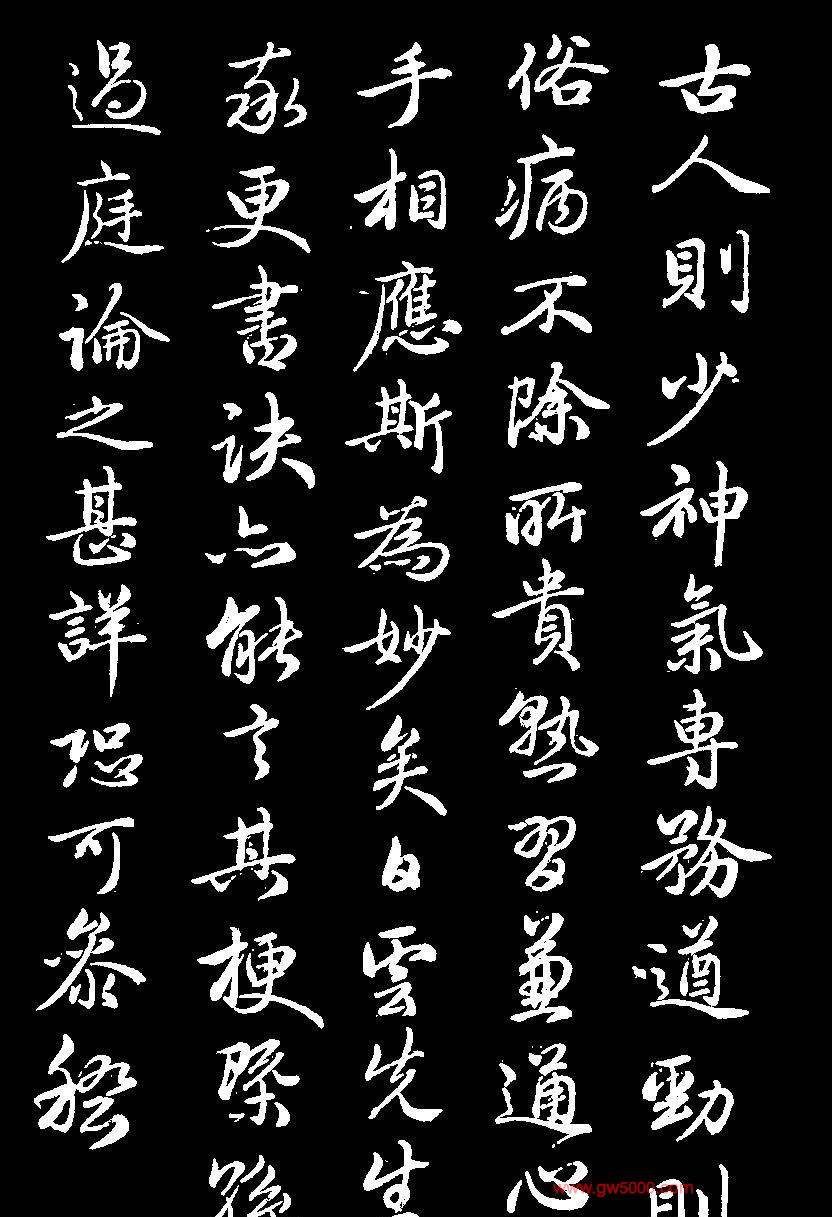 古人則少神氣專務遒勁則
俗病不除所貴熟習兼通心
手相應斯為妙矣白雲先生
家更書訣亦能言其梗槩孫
過庭論之甚詳恐可參稽
www.gw5000.com